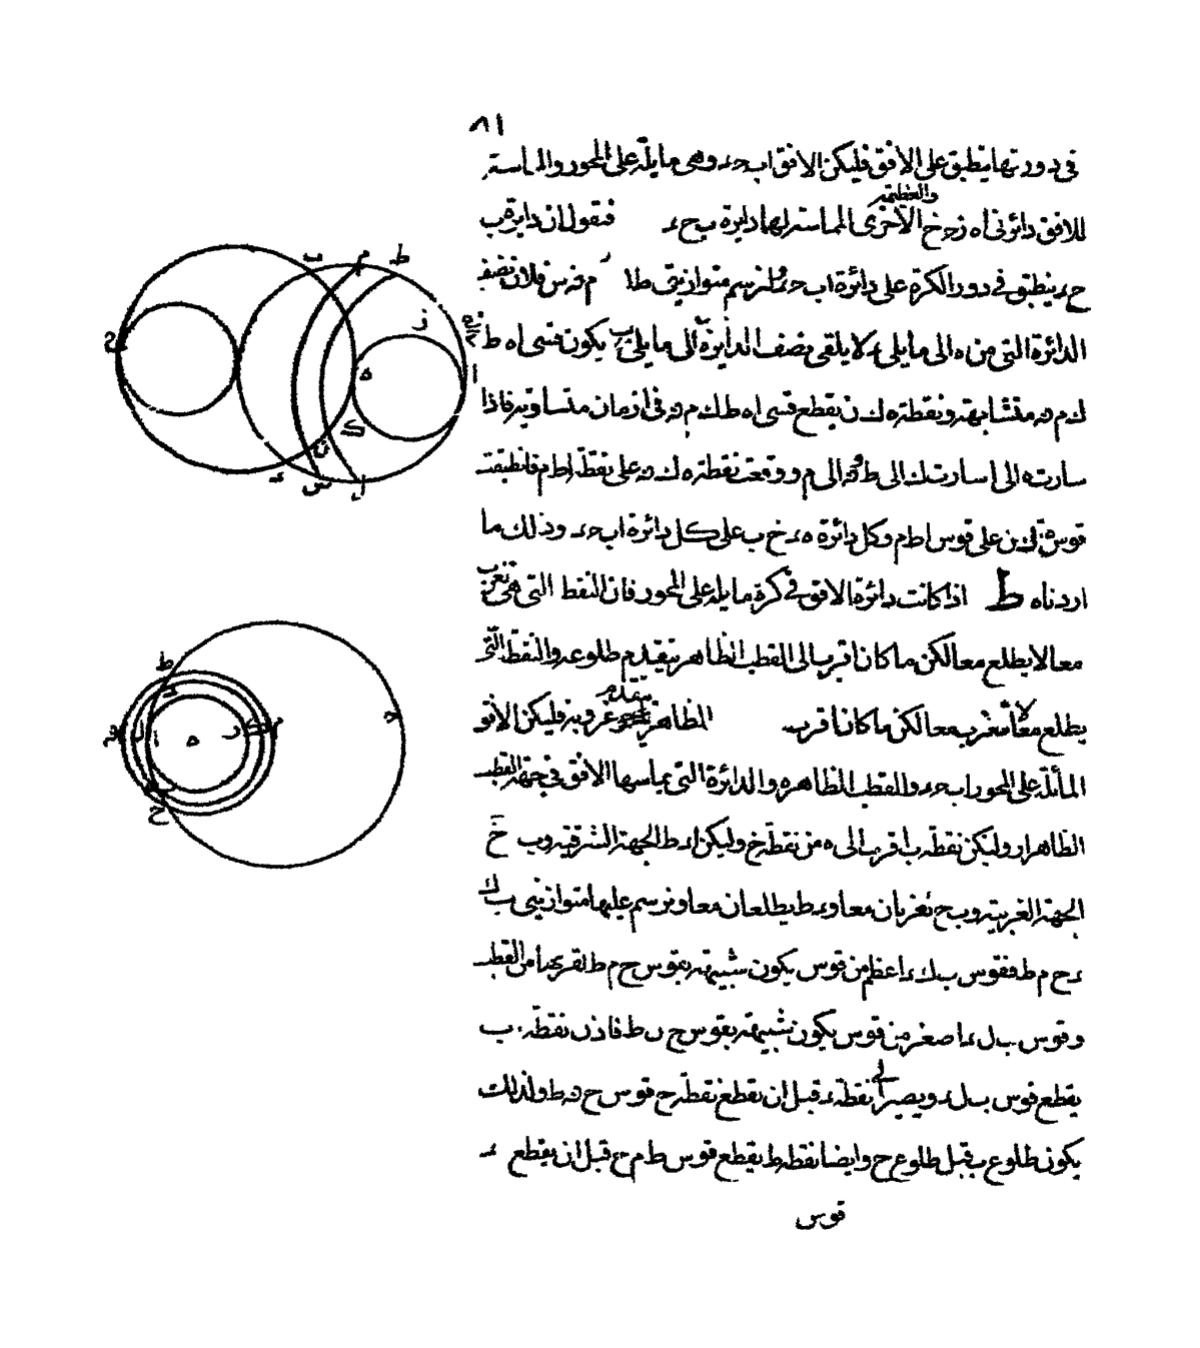 ٨١
فى دورتها ينطبق على الافق فليكن الافق اب حء وهى مايلة على المحور والمماسة
والعظيمة
للافق دائرتى اه ز ح خ الاخرى المماسة لها دايرة ب ح ء فنقول ان دايرة ب
ح ء ينطبق فى دور الكرة على دائرة اب حء لنرسم متوازيتى ط ا م نه س فلان نصف
الدائرة التى من ه الى ما يلى ء لا يلقى نصف الدايرة الى ما يلى ب يكون قسى اه ط
ك م نه متشابهة ونقطة ه ك ن يقطع قسى اه ط ك م نه فى ازمان متساوية فاذا
سارت ه الى ا سارت ك الى ط ونه الى م ووقعت نقطة ه ك نه على نقطة ا ط م فانطبقت
قوس ه ك ن على قوس ا ط م وكل دائرة ه ء خ ب على كل دائرة اب حء وذلك ما
اردناه ط اذا كانت دائرة الافق فى كرة مايلة على المحور فان النقط التى هى تغرب
معا لا يطلع معا لكن ما كان اقرب الى القطب الظاهر يتقدم طلوعه والنقط التى
يطلع معا لا تغرب معا لكن ما كان اقرب الظاهر يتقدم غروبه فليكن الافق
المائلة على المحور اب حء والقطب الظاهر ه والدائرة التى يماسها الافق فى جهة القطب
الظاهر ا ر وليكن نقطة ب اقرب الى ه من نقطة خ وليكن اء ط الجهة الشرقية وب خ
الجهة الغربية وب ح تغربان معا وء ط يطلعان معا ونرسم عليها متوازيتى ب ك
ء ح م ط فقوس ب ك ء اعظم من قوس يكون شبيهة بقوس ح م ط لقربها من القطب
وقوس ب ل ء اصغر من قوس يكون شبيهة بقوس ح ن ط فاذن نقطة ب
يقطع قوس ب ل ء ويصير الى نقطة ء قبل ان يقطع نقطة ح قوس ح نه ط ولذلك
يكون طلوع ب قبل طلوع ح وايضا نقطة ط يقطع قوس ط م ح قبل ان يقطع ء
قوس
ب م ط
ز
ح
ه ا
ك
ن
ء س ل
ط
ء
م ك ر
ح
ن ل ا ه
ب
ح